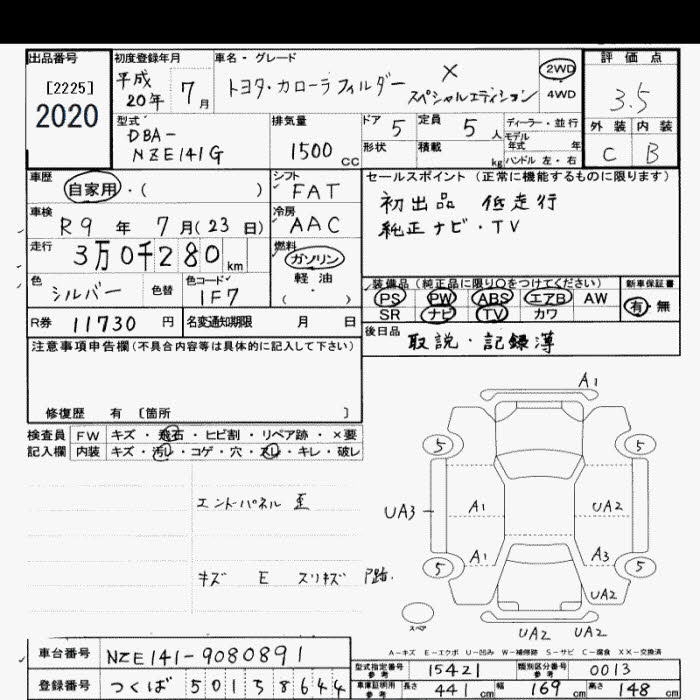 出品番号
[2225]
2020
初度登録年月
平成
20年 7月
車名・グレード
トヨタ・カローラフィルダー X
スペシャルエディション
2WD
4WD
評価点
3.5
外装 内装
C B
型式
DBA-
NZE141G
排気量
1500 CC
ドア 5
定員 5 人
形状
積載 kg
ディーラー・並行
モデル
年式 年
ハンドル 左・右
車歴
自家用・( )
シフト
FAT
車検
R9 年 7 月(23 日)
冷房
AAC
走行
3万0千280 km
燃料
ガソリン
軽油
( )
色
シルバー
色替
色コード
1F7
R券 11730 円
名変通知期限 月 日
セールスポイント (正常に機能するものに限ります)
初出品 低走行
純正ナビ・TV
装備品(純正品に限り○をつけてください)
新車保証書
PS PW ABS エアB AW
SR ナビ TV カワ
有・無
後日品
取説・記録簿
注意事項申告欄(不具合内容等は具体的に記入して下さい)
修復歴 有 〔箇所 〕
検査員 FW キズ・飛石・ヒビ割・リペア跡・×要
記入欄 内装 キズ・汚レ・コゲ・穴・スレ・キレ・破レ
エンドパネル 歪
キズ E スリキズ
A1
5 5
UA3 A1 UA2
A1 A3
5 5
UA2
スペア
UA2 UA2
A−キズ E−エクボ U−凹み W−補修跡 S−サビ C−腐食 XX−交換済
車台番号 NZE141-9080891
登録番号 つくば 501 3 8644
型式指定番号
参考
15421
類別区分番号
参考
0013
車庫証明用
参考
長さ 441 cm 幅 169 cm 高さ 148 cm